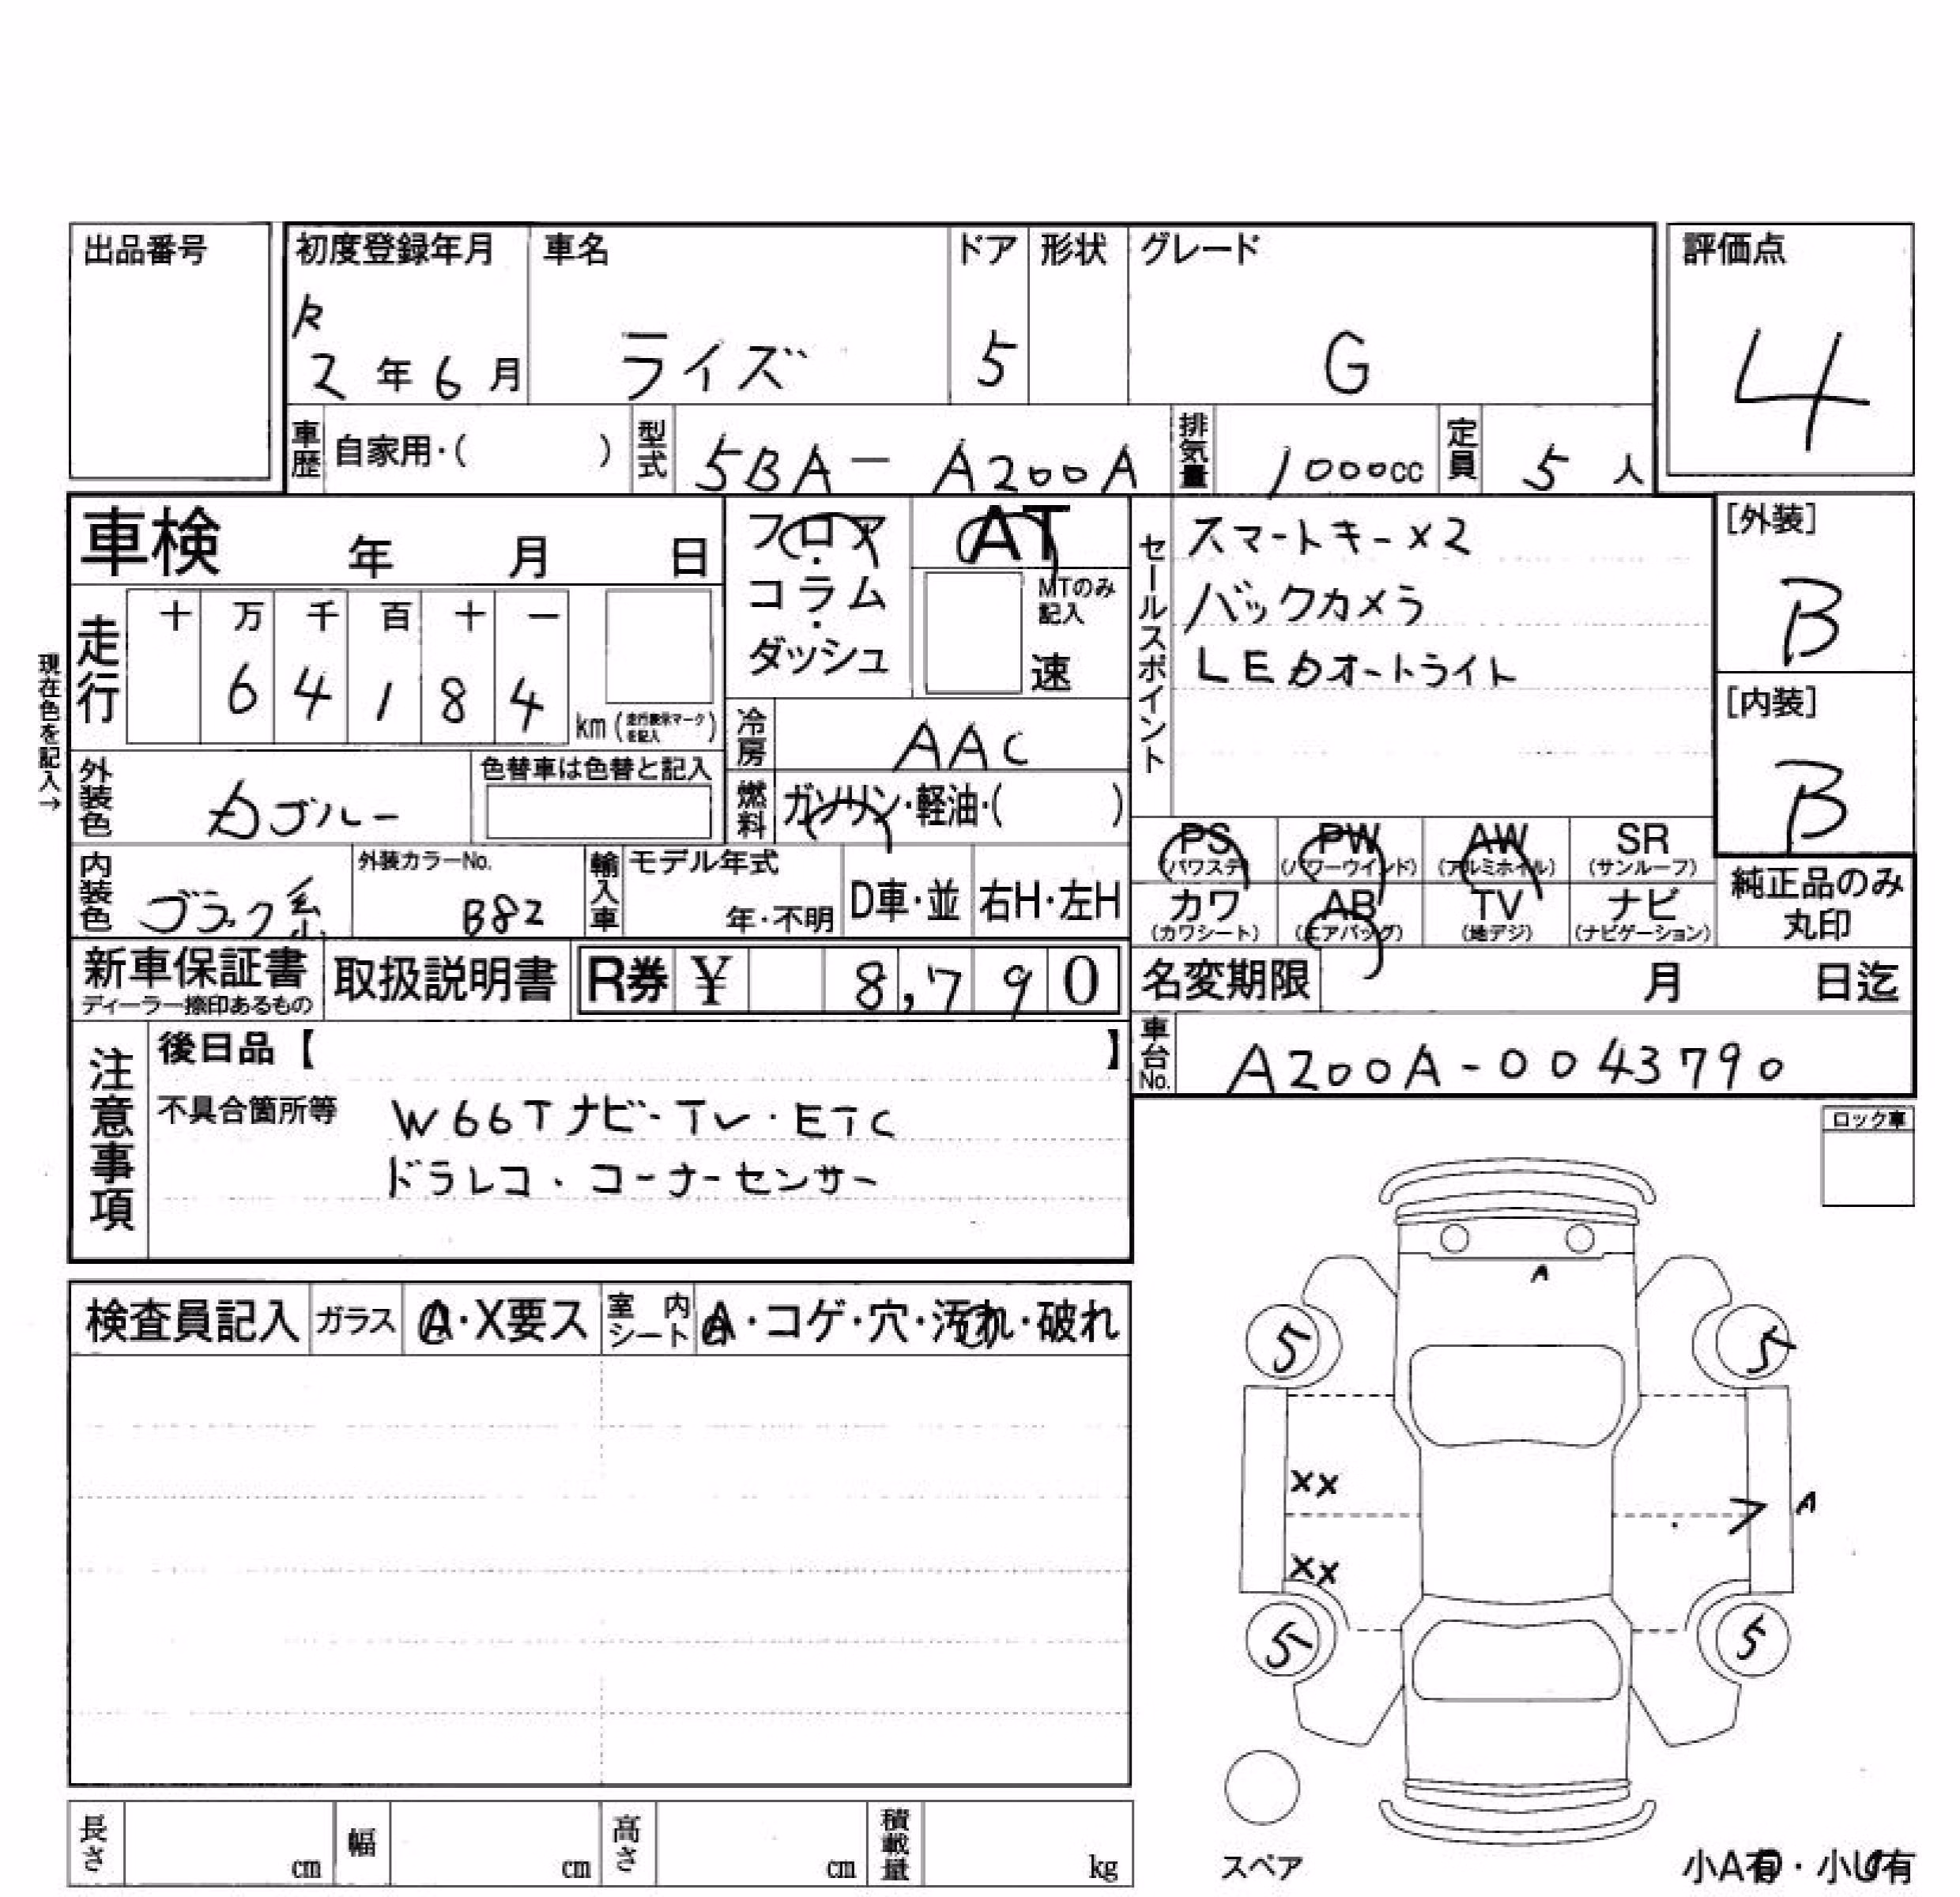 出品番号
初度登録年月 車名 ドア 形状 グレード 評価点
2年6月 ライズ 5 G 4
車歴 自家用・( ) 型式 5BA- A200A 排気量 1000cc 定員 5人
車検 年 月 日
フロア・コラム・ダッシュ
AT
MTのみ記入
速
セールスポイント
スマートキー×2
バックカメラ
LEDオートライト
[外装]
B
[内装]
B
現在色を記入→
走行 十 万 千 百 十 一
6 4 1 8 4 km (走行表示マークを記入)
冷房 AAC
外装色 ブルー 色替車は色替と記入
燃料 ガソリン・軽油・( )
PS (パワステ) PW (パワーウインド) AW (アルミホイル) SR (サンルーフ)
カワ (カワシート) AB (エアバッグ) TV (地デジ) ナビ (ナビゲーション)
純正品のみ丸印
内装色 ブラック系 外装カラーNo. B82 輸入車 モデル年式 年・不明 D車・並 右H・左H
新車保証書 ディーラー捺印あるもの 取扱説明書 R券 ¥ 8,790
名変期限 月 日迄
車台No. A200A-0043790
注意事項
後日品【 】
不具合箇所等 W66Tナビ・TV・ETC
ドラレコ・コーナーセンサー
ロック車
検査員記入 ガラス A・X要ス 室内シート A・コゲ・穴・汚れ・破れ
A
5 5
XX
A
XX
5 5
スペア
小A有・小U有
長さ cm 幅 cm 高さ cm 積載量 kg